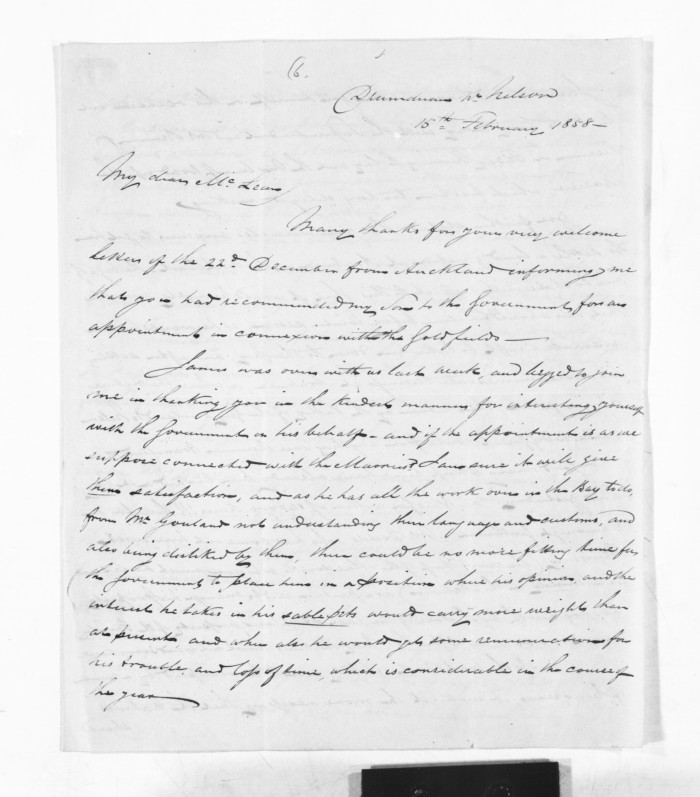 6.
Drumduan nr. Nelson
15th. February 1858 —
My dear Mc.Lean
Many thanks for your very welcome
letter of the 22d. December from Auckland informing me
that you had recommended my Son to the Government for an
appointment in connexion with the Goldfields —
James was over with us last week, and begged to join
me in thanking you in the kindest manner for interesting yourself
with the Government in his behalf – and if the appointment is as we
suppose connected with the Maories? I am sure it will give
them satisfaction, and as he has all the work over in the Bay to do,
from Mr Gouland not understanding their language and customs, and
also being disliked by them, there could be no more fitting time for
the Government to place him in a position where his opinion, and the
interest he takes in his sable pets would carry more weight than
at present, and when also he would get some remuneration for
his trouble, and loss of time, which is considerable in the course of
the year —